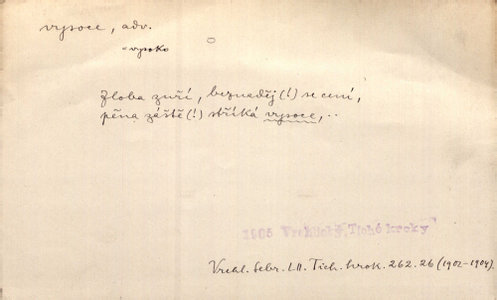 vysoce, adv.
= vysoko
Zloba zuří, beznaděj (!) se cení,
pěna záště (!) stříká vysoce, ..
1905 Vrchlický, Tiché kroky
Vrchl. Sebr. LII. Tich. krok. 262.26 (1902-1904).